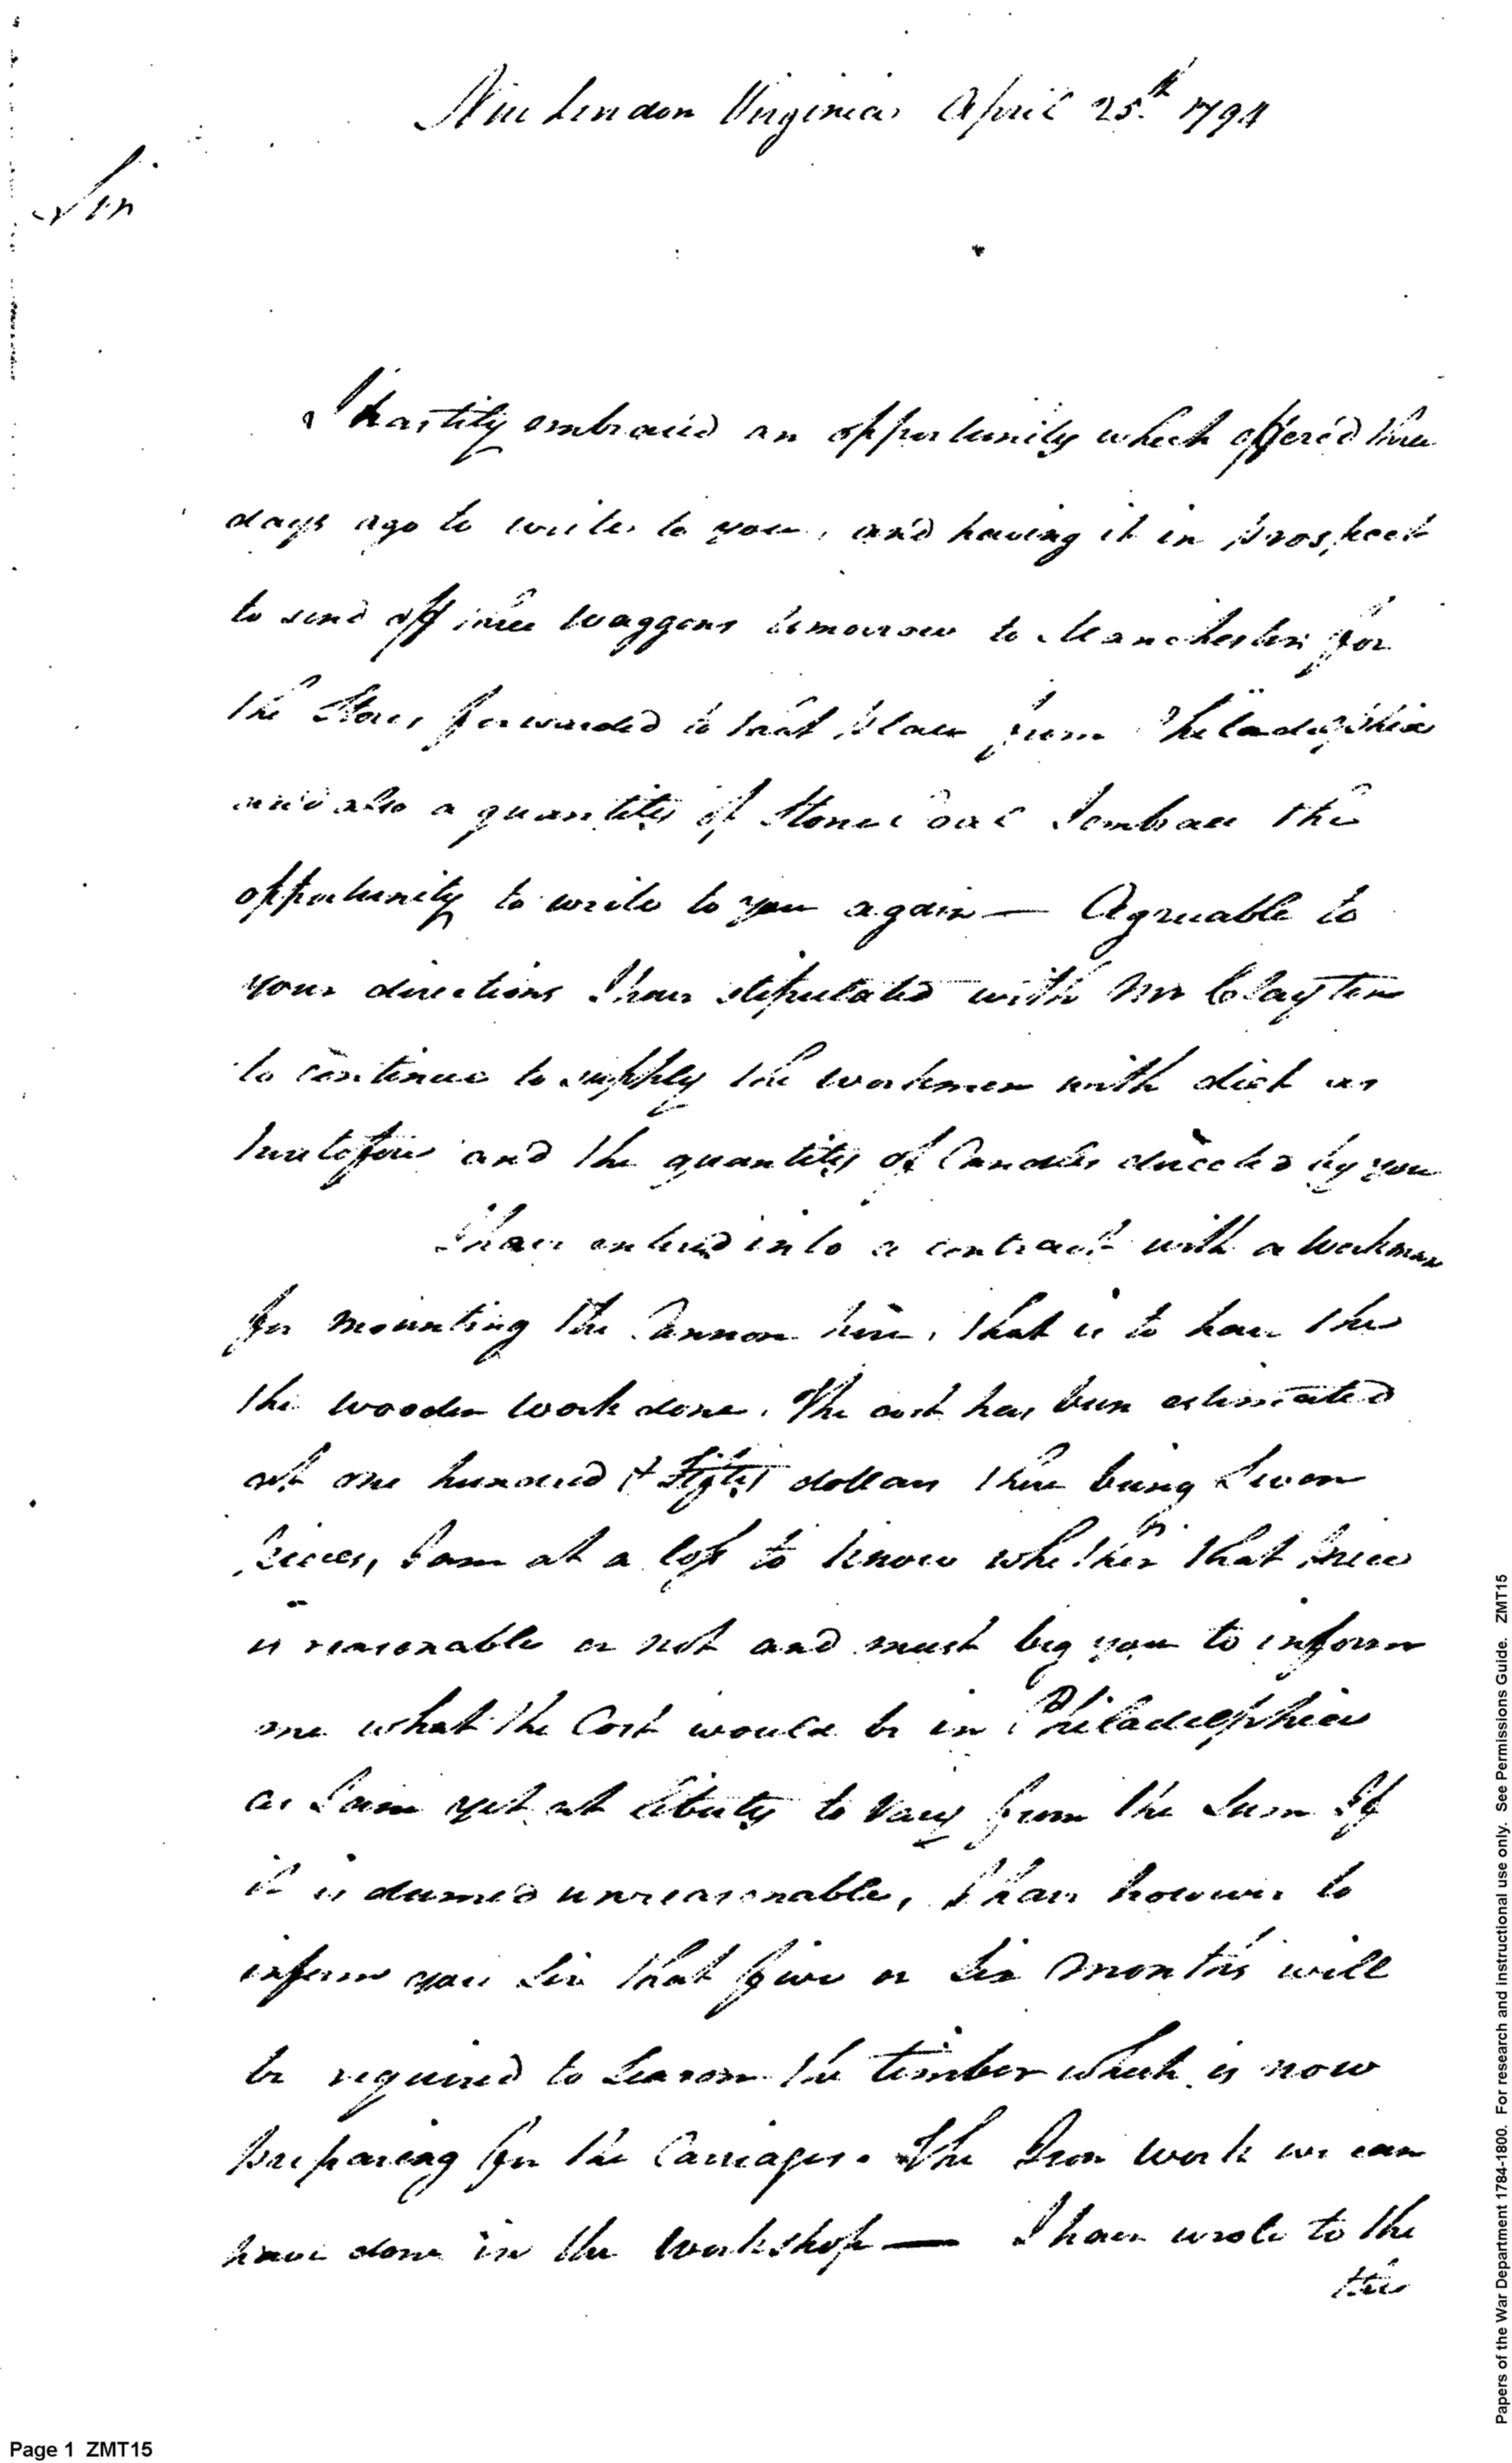 New London Virginia April 25th 1794
Sir
I hastily embraced an opportunity which offer'd three
days ago to write to you, and having it in prospect
to send off three waggons tomorrow to Manchester for
the Stores forwarded to that place from Philadelphia
and also a quantity of Stone Coal I embrace the
opportunity to write to you again — Agreeable to
your directions I have stipulated with Mr Clayton
to continue to supply the workmen with diet as
heretofore and the quantity of Candles directed by you
I have entered into a contract with a Workman
for mounting the Cannon here, that is to have the
the wooden work done. The cost has been estimated
at one hundred & fifty dollars there being Seven
pieces, I am at a loss to know whether that price
is reasonable or not and must beg you to inform
me what the Cost would be in Philadelphia
as I am yet at liberty to vary from the Sum If
it is deemed unreasonable, I have however to
inform you Sir that five or Six months will
be required to Season the timber which is now
preparing for the Carriages. The Iron work we can
have done in the Workshop — I have wrote to the
the
Page 1 ZMT15
Papers of the War Department 1784-1800. For research and instructional use only. See Permissions Guide. ZMT15